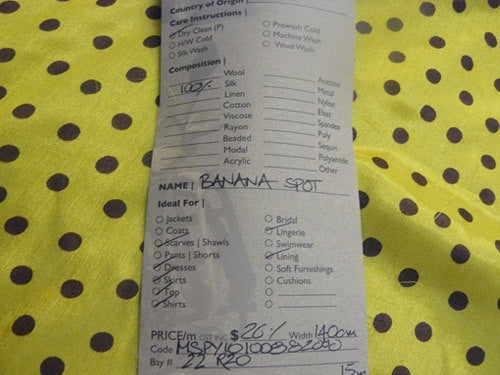 Country of Origin |
Care Instructions |
Dry Clean (P)
H/W Cold
Silk Wash
Prewash Cold
Machine Wash
Wool Wash
Composition |
Wool
100% Silk
Linen
Cotton
Viscose
Rayon
Beaded
Modal
Acrylic
Acetate
Metal
Nylon
Elast
Spandex
Poly
Sequin
Polyamide
Other
NAME | BANANA SPOT
Ideal For |
Jackets
Coats
Scarves | Shawls
Pants | Shorts
Dresses
Skirts
Top
Shirts
Bridal
Lingerie
Swimwear
Lining
Soft Furnishings
Cushions
PRICE/m GST INC $20/ Width 140cm
Code
Bay # 22 R20